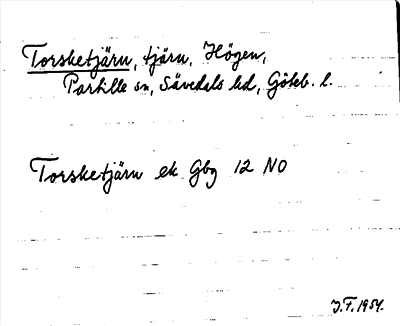 Torsketjärn, tjärn, Högen,
Partille sn, Sävedals hd, Göteb. l.
Torsketjärn ek Gbg 12 NO
J.F. 1954.